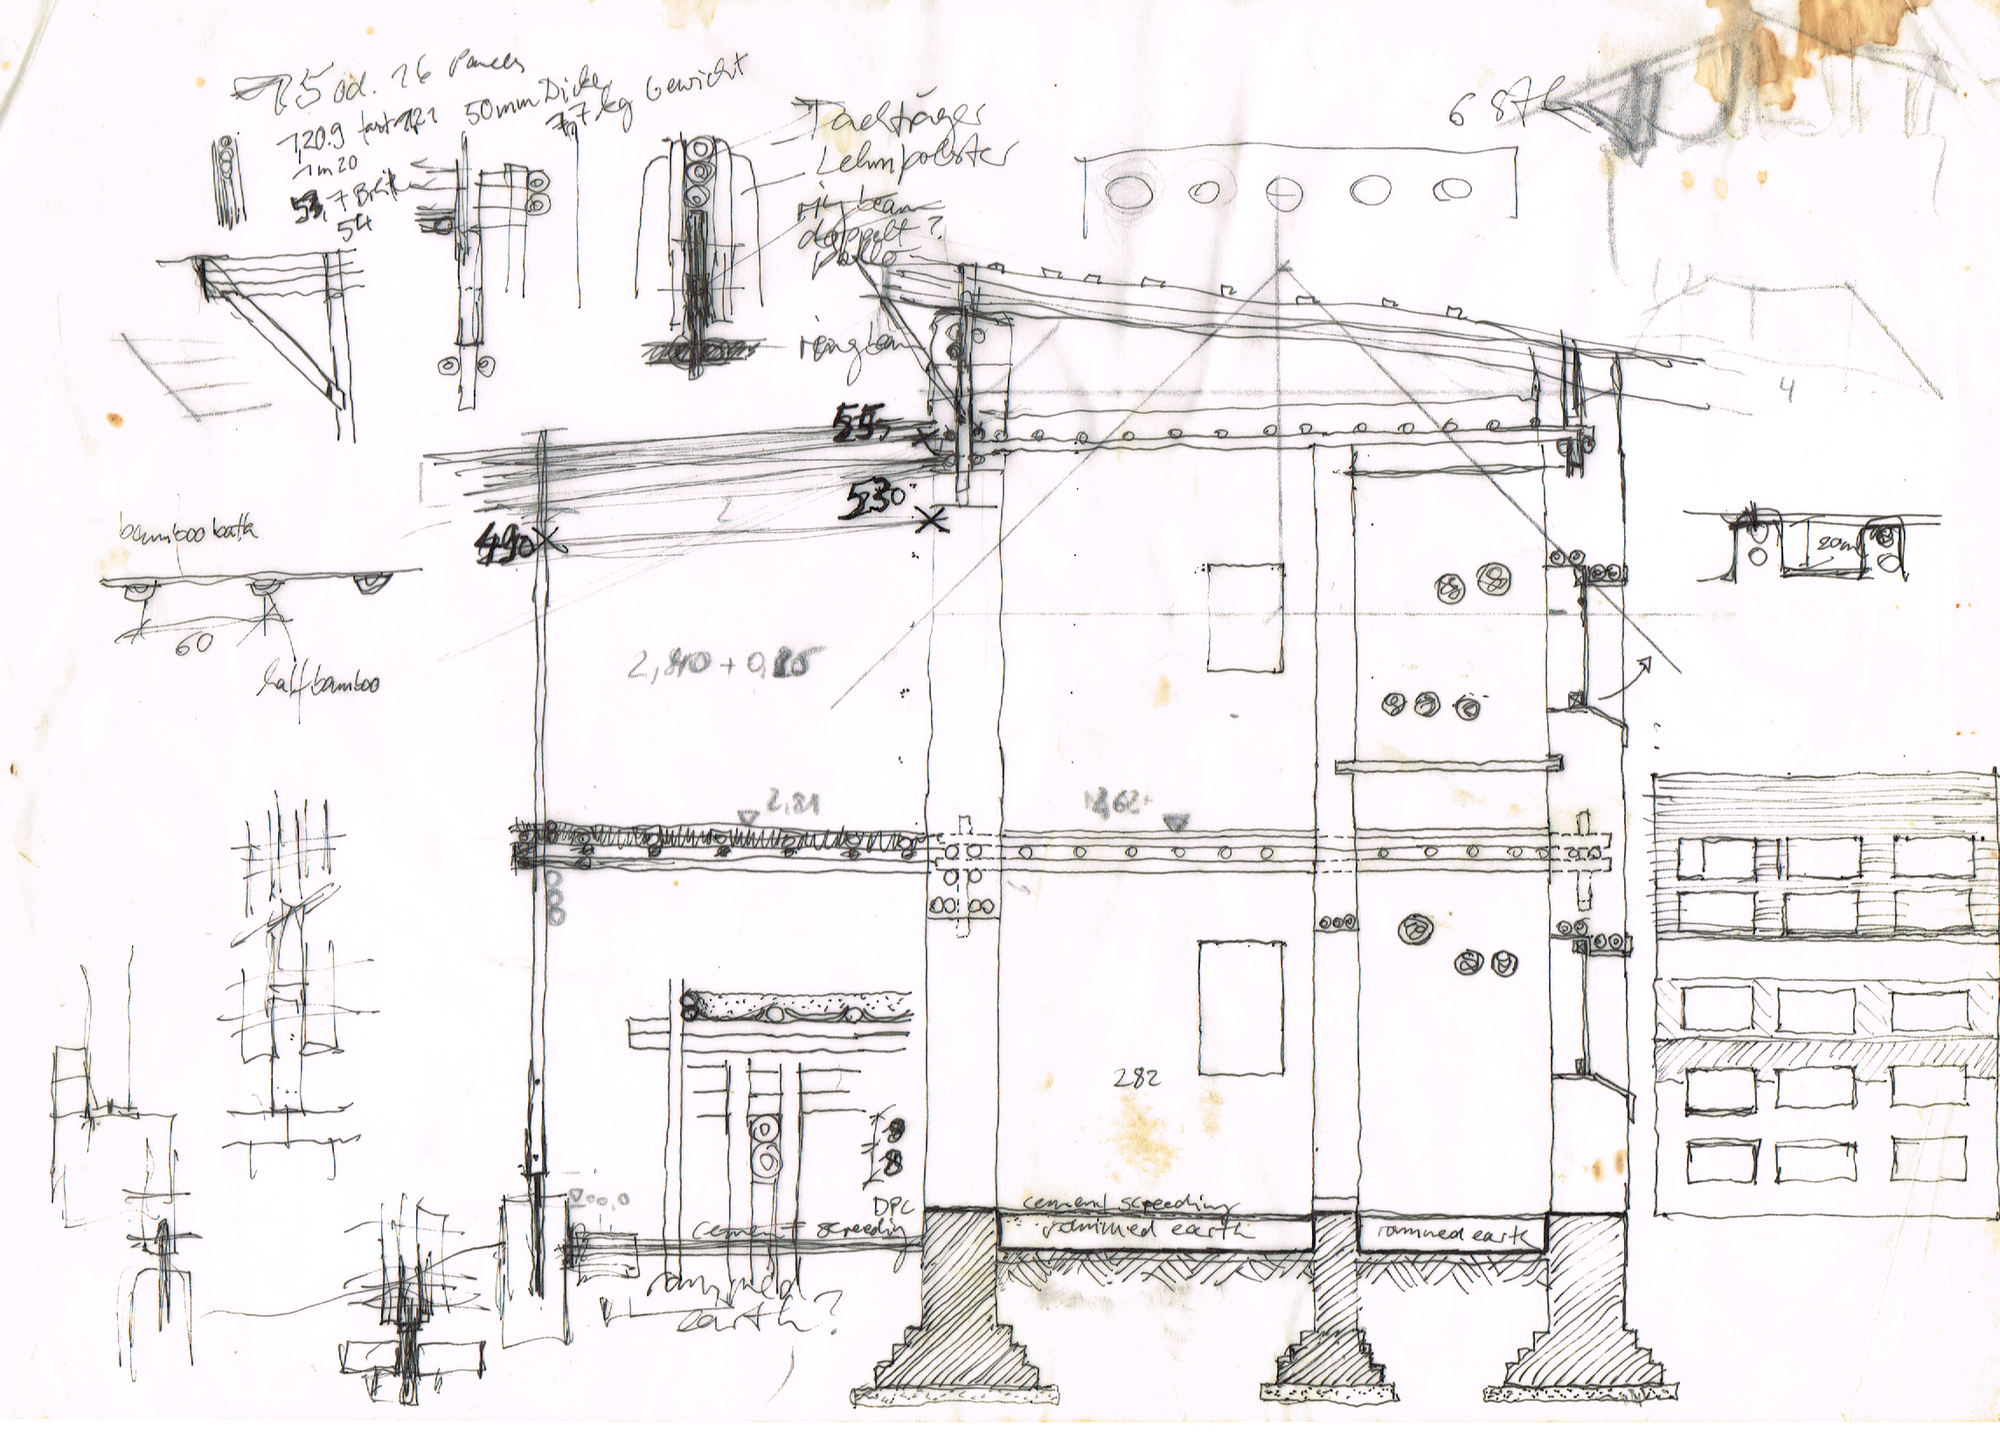 15 od. 16 Panels
120.9 fast 121 50mm Dicke
7,7 kg Gewicht
1m20
53,7 Breite
54
Dachträger
Lehmpolster
ring beam
doppelt?
ringbeam
687
4
55
530
490
bamboo
60
half bamboo
20cm
2,81
282
DPC
cement screeding
cement screeding
rammed earth
rammed earth
rammed
earth?